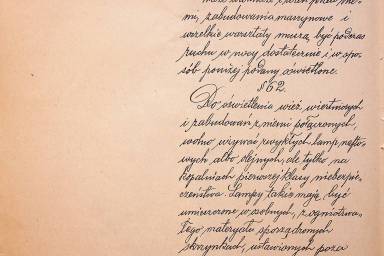 mi, zabudowania maszynowe i
wszelkie warsztaty muszą być podczas
ruchu w nocy dostatecznie i w spo-
sób poniżej podany oświetlone.
§ 62.
Do oświetlenia wież wiertniczych
i zabudowań z niemi połączonych,
wolno używać zwykłych lamp nafto-
wych albo olejnych, ale tylko na
kopalniach pierwszej klasy niebezpie-
czeństwa. Lampy takie mają być
umieszczone w osobnych, z ogniotrwa-
łego materyału sporządzonych
skrzynkach, ustawionych poza